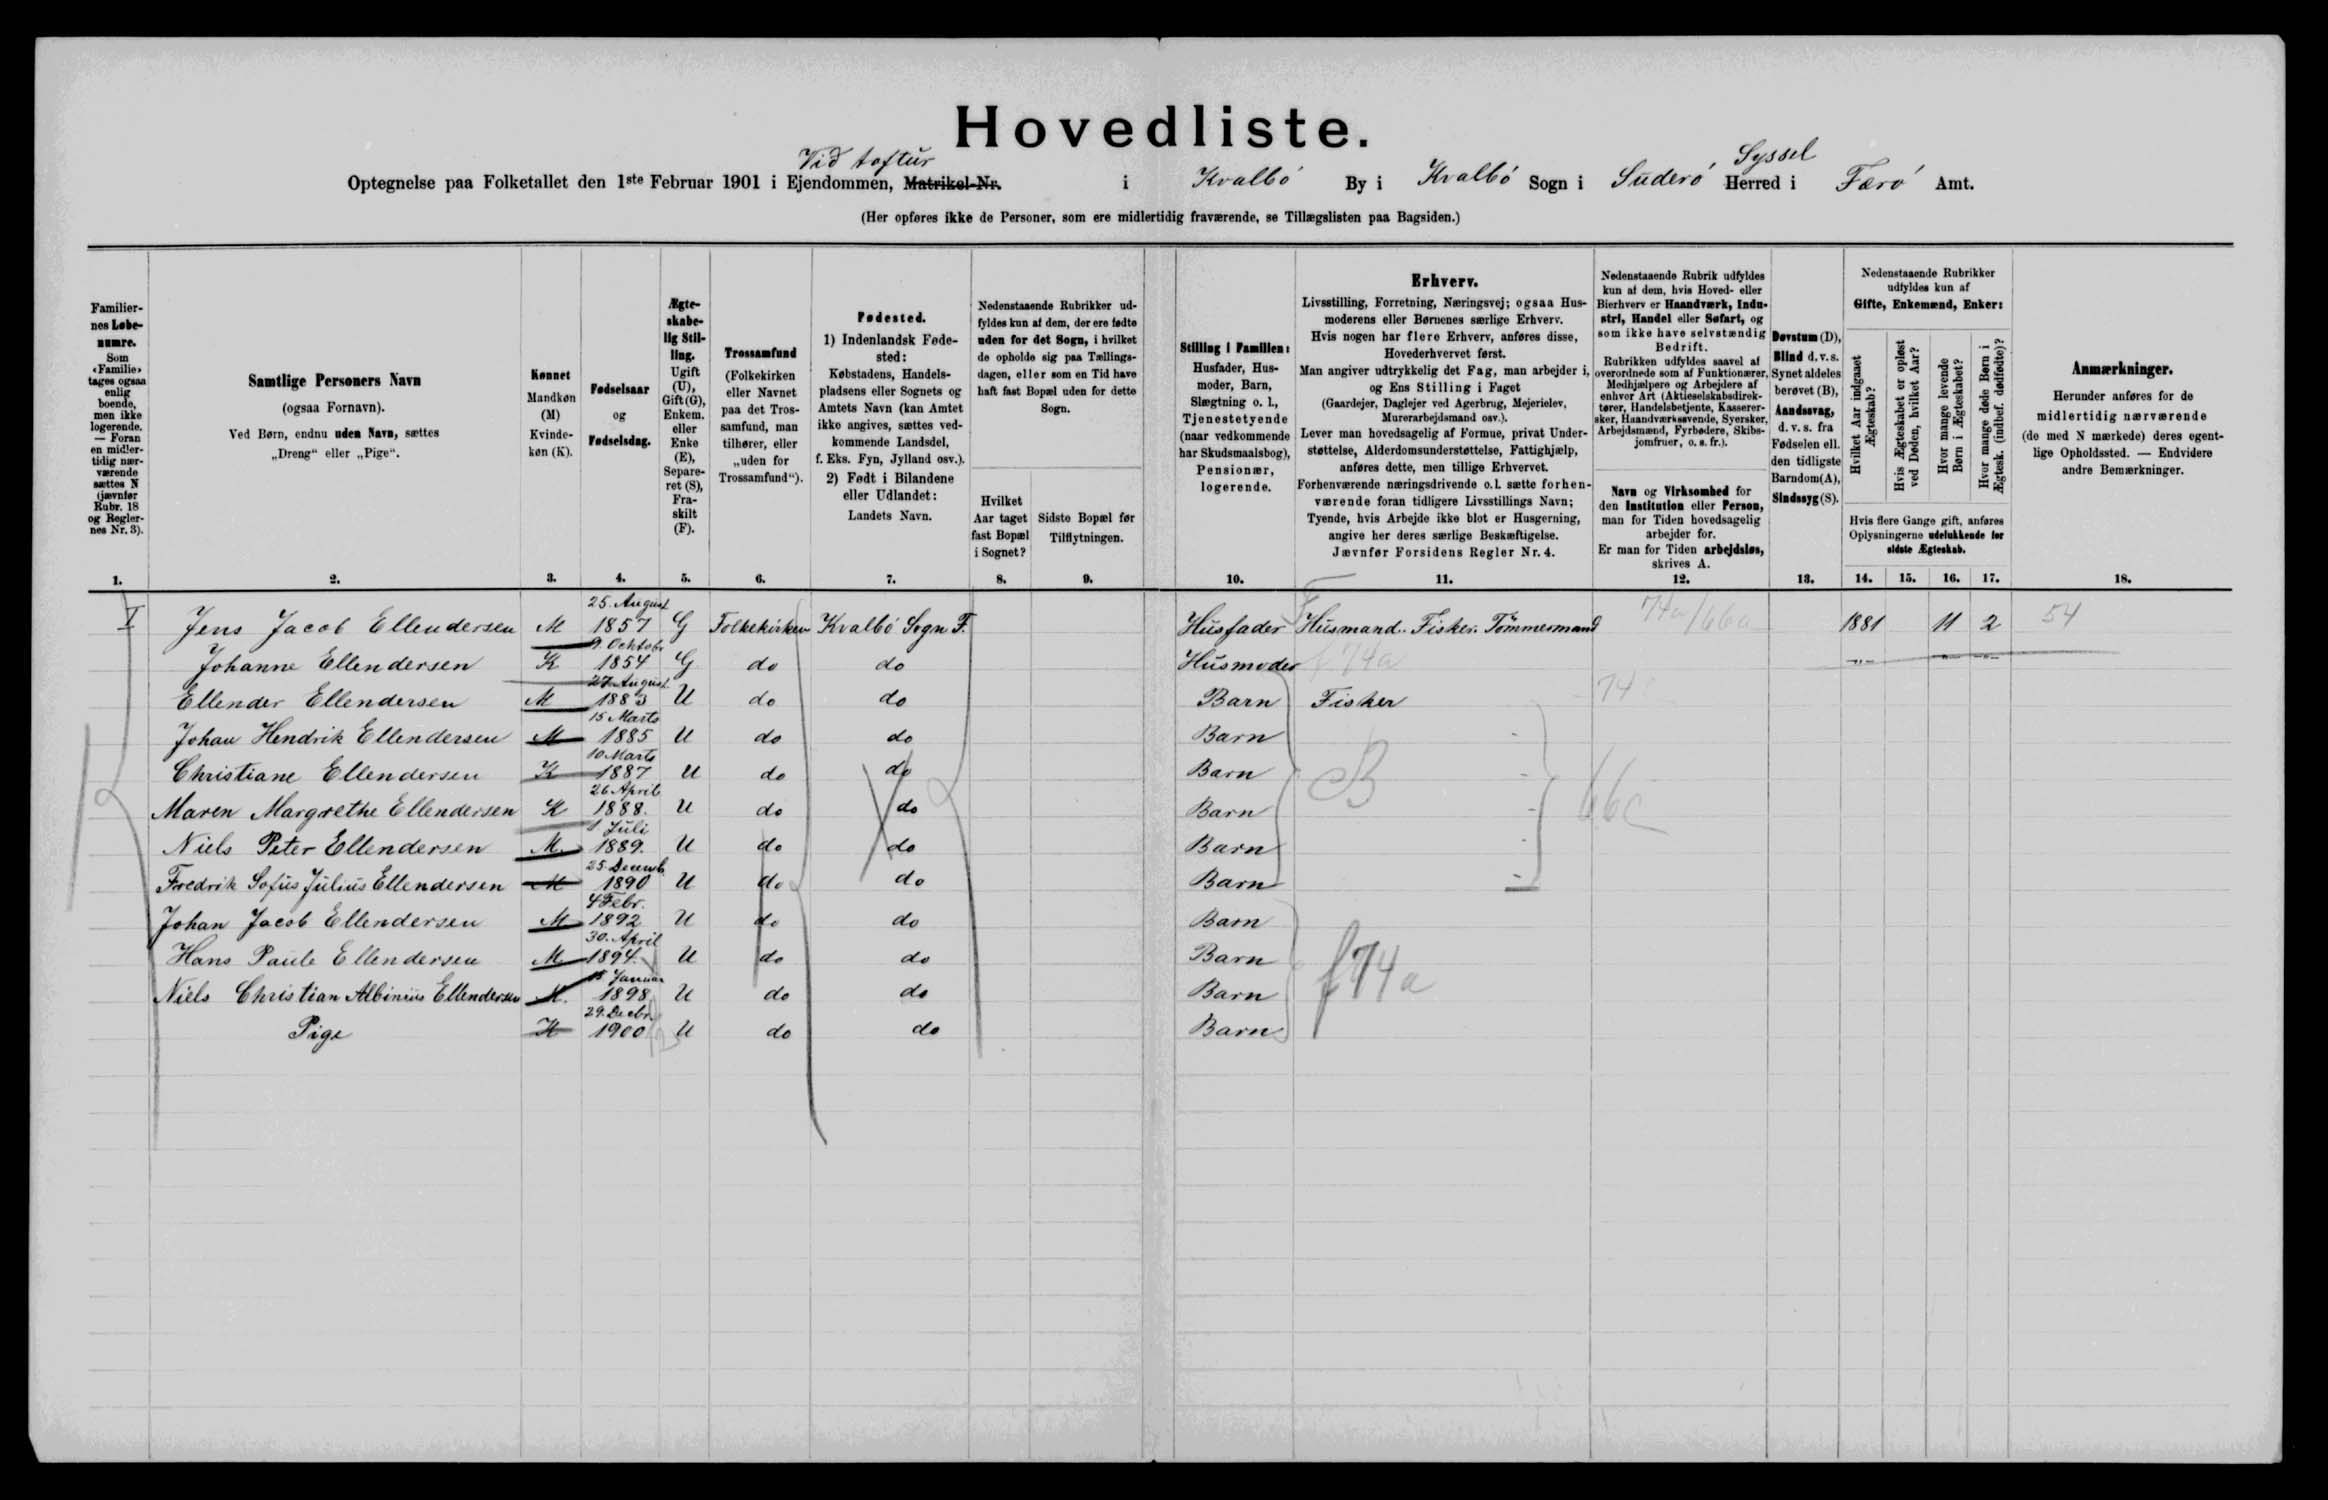 Hovedliste.
Vid toftur
Syssel
Optegnelse paa Folketallet den 1ste Februar 1901 i Ejendommen, Matrikel-Nr. i Kvalbó By i Kvalbó Sogn i Suderó Herred i Færó Amt.
(Her opføres ikke de Personer, som ere midlertidig fraværende, se Tillægslisten paa Bagsiden.)
Familier-
nes Løbe-
numre.
Som
«Familie»
tages ogsaa
enlig
boende,
men ikke
logerende.
— Foran
en midler-
tidig nær-
værende
sættes N
(jævnfør
Rubr. 18
og Regler-
nes Nr. 3).
1.
Samtlige Personers Navn
(ogsaa Fornavn).
Ved Børn, endnu uden Navn, sættes
„Dreng“ eller „Pige“.
2.
Kønnet
Mandkøn
(M)
Kvinde-
køn (K).
3.
Fødselsaar
og
Fødselsdag.
4.
Ægte-
skabe-
lig Stil-
ling.
Ugift
(U),
Gift (G),
Enkem.
eller
Enke
(E),
Separe-
ret (S),
Fra-
skilt
(F).
5.
Trossamfund
(Folkekirken
eller Navnet
paa det Tros-
samfund, man
tilhører, eller
„uden for
Trossamfund“).
6.
Fødested.
1) Indenlandsk Føde-
sted:
Købstadens, Handels-
pladsens eller Sognets og
Amtets Navn (kan Amtet
ikke angives, sættes ved-
kommende Landsdel,
f. Eks. Fyn, Jylland osv.).
2) Født i Bilandene
eller Udlandet:
Landets Navn.
7.
Nedenstaaende Rubrikker ud-
fyldes kun af dem, der ere fødte
uden for det Sogn, i hvilket
de opholde sig paa Tællings-
dagen, eller som en Tid have
haft fast Bopæl uden for dette
Sogn.
Hvilket
Aar taget
fast Bopæl
i Sognet?
8.
Sidste Bopæl før
Tilflytningen.
9.
Stilling i Familien:
Husfader, Hus-
moder, Barn,
Slægtning o. l.,
Tjenestetyende
(naar vedkommende
har Skudsmaalsbog),
Pensionær,
logerende.
10.
Erhverv.
Livsstilling, Forretning, Næringsvej; ogsaa Hus-
moderens eller Børnenes særlige Erhverv.
Hvis nogen har flere Erhverv, anføres disse,
Hovederhvervet først.
Man angiver udtrykkelig det Fag, man arbejder i,
og Ens Stilling i Faget
(Gaardejer, Daglejer ved Agerbrug, Mejerielev,
Murerarbejdsmand osv.).
Lever man hovedsagelig af Formue, privat Under-
støttelse, Alderdomsunderstøttelse, Fattighjælp,
anføres dette, men tillige Erhvervet.
Forhenværende næringsdrivende o. l. sætte forhen-
værende foran tidligere Livsstillings Navn;
Tyende, hvis Arbejde ikke blot er Husgerning,
angive her deres særlige Beskæftigelse.
Jævnfør Forsidens Regler Nr. 4.
11.
Nedenstaaende Rubrik udfyldes
kun af dem, hvis Hoved- eller
Bierhverv er Haandværk, Indu-
stri, Handel eller Søfart, og
som ikke have selvstændig
Bedrift.
Rubrikken udfyldes saavel af
overordnede som af Funktionærer,
Medhjælpere og Arbejdere af
enhver Art (Aktieselskabsdirek-
tører, Handelsbetjente, Kasserer-
sker, Haandværkssvende, Syersker,
Arbejdsmænd, Fyrbødere, Skibs-
jomfruer, o. s. fr.).
Navn og Virksomhed for
den Institution eller Person,
man for Tiden hovedsagelig
arbejder for.
Er man for Tiden arbejdsløs,
skrives A.
12.
Døvstum (D),
Blind d. v. s.
Synet aldeles
berøvet (B),
Aandssvag,
d. v. s. fra
Fødselen ell.
den tidligste
Barndom (A),
Sindssyg (S).
13.
Nedenstaaende Rubrikker
udfyldes kun af
Gifte, Enkemænd, Enker:
Hvilket Aar indgaaet
Ægteskab?
Hvis Ægteskabet er opløst
ved Døden, hvilket Aar?
Hvor mange levende
Børn i Ægteskabet?
Hvor mange døde Børn i
Ægtesk. (indbef. dødfødte)?
Hvis flere Gange gift, anføres
Oplysningerne udelukkende for
sidste Ægteskab.
14. 15. 16. 17.
Anmærkninger.
Herunder anføres for de
midlertidig nærværende
(de med N mærkede) deres egent-
lige Opholdssted. — Endvidere
andre Bemærkninger.
18.
I Jens Jacob Ellendersen M 25. August 1857 G Folkekirken Kvalbó Sogn F. Husfader Husmand. Fisker. Tömmermand 74a/66a 1881 11 2 54
Johanne Ellendersen K 9. Ochtobr 1854 G do do Husmoder f 74a „ „ „
Ellender Ellendersen M 27. August 1883 U do do Barn Fisker 74
Johan Hendrik Ellendersen M 15 Marts 1885 U do do Barn
Christiane Ellendersen K 10. Marts 1887 U do do Barn B
Maren Margrethe Ellendersen K 26 April 1888. U do do Barn 66c
Niels Peter Ellendersen M. 1 Juli 1889. U do do Barn
Fredrik Sofus Julius Ellendersen M 25. Decemb. 1890 U do do Barn
Johan Jacob Ellendersen M 4 Febr. 1892 U do do Barn
Hans Paule Ellendersen M 30. April 1894. U do do Barn f74a
Niels Christian Albinius Ellendersen M. Januar 1898 U do do Barn
Pige K 29. Decbr. 1900 U do do Barn